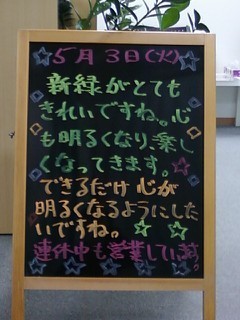 5月3日(火)
新緑がとても
きれいですね。心
も明るくなり、楽し
くなってきます。
できるだけ心が
明るくなるようにした
いですね。
連休中も営業しています。